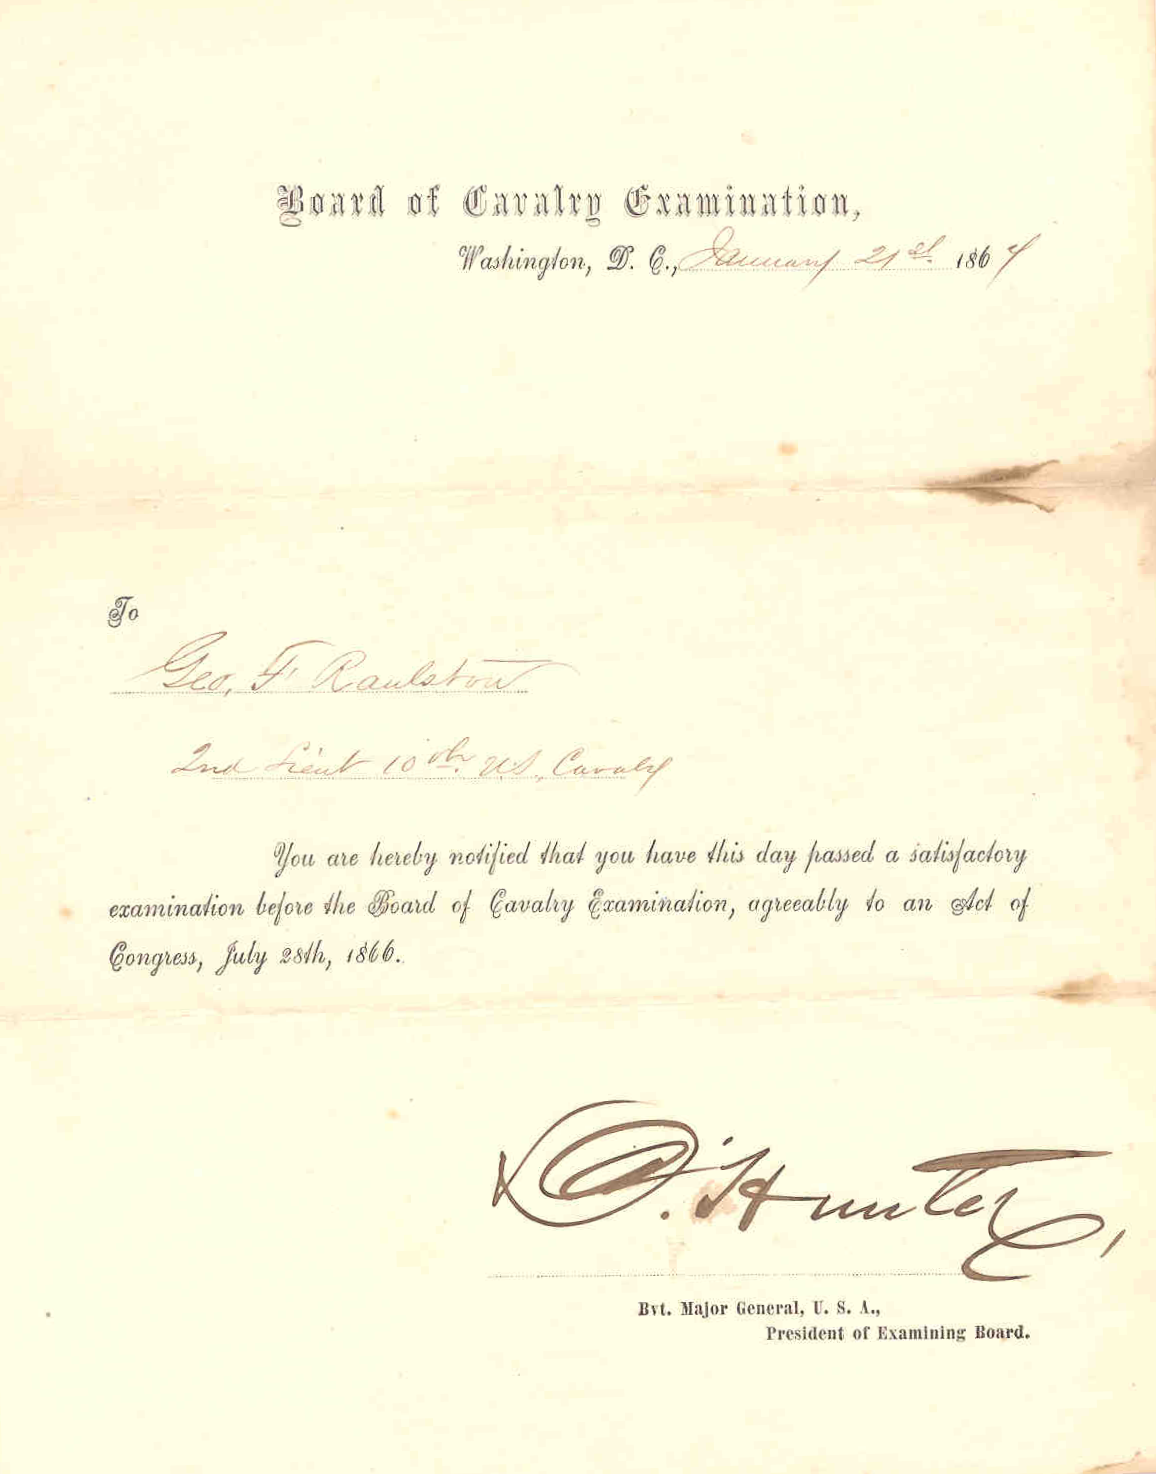 Board of Cavalry Examination,
Washington, D. C., January 21st. 1867
To
Geo. F. Raulston
2nd Lieut 10th. U.S. Cavalry
You are hereby notified that you have this day passed a satisfactory
examination before the Board of Cavalry Examination, agreeably to an Act of
Congress, July 28th, 1866.
D. Hunter,
Bvt. Major General, U. S. A.,
President of Examining Board.